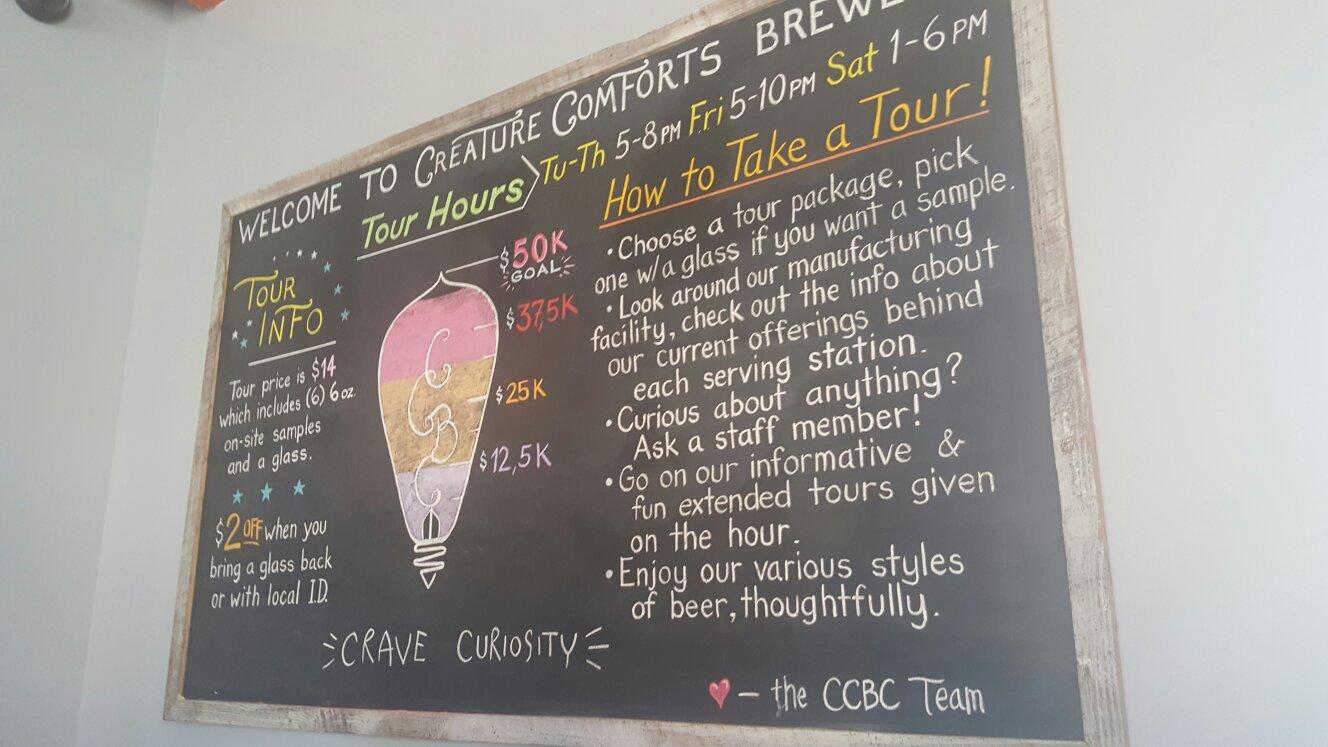 WELCOME TO CREATURE COMFORTS BREWE
Tour Hours Tu-Th 5-8PM Fri 5-10PM Sat 1-6PM
TOUR
INFO
Tour price is $14
which includes (6) 6oz.
on-site samples
and a glass.
$2 OFF when you
bring a glass back
or with local I.D.
$50K
GOAL
$37,5K
$25K
$12,5K
CBC
CRAVE CURIOSITY
How to Take a Tour!
• Choose a tour package, pick
one w/a glass if you want a sample.
• Look around our manufacturing
facility, check out the info about
our current offerings behind
each serving station.
• Curious about anything?
Ask a staff member!
• Go on our informative &
fun extended tours given
on the hour.
• Enjoy our various styles
of beer, thoughtfully.
♥ – the CCBC Team